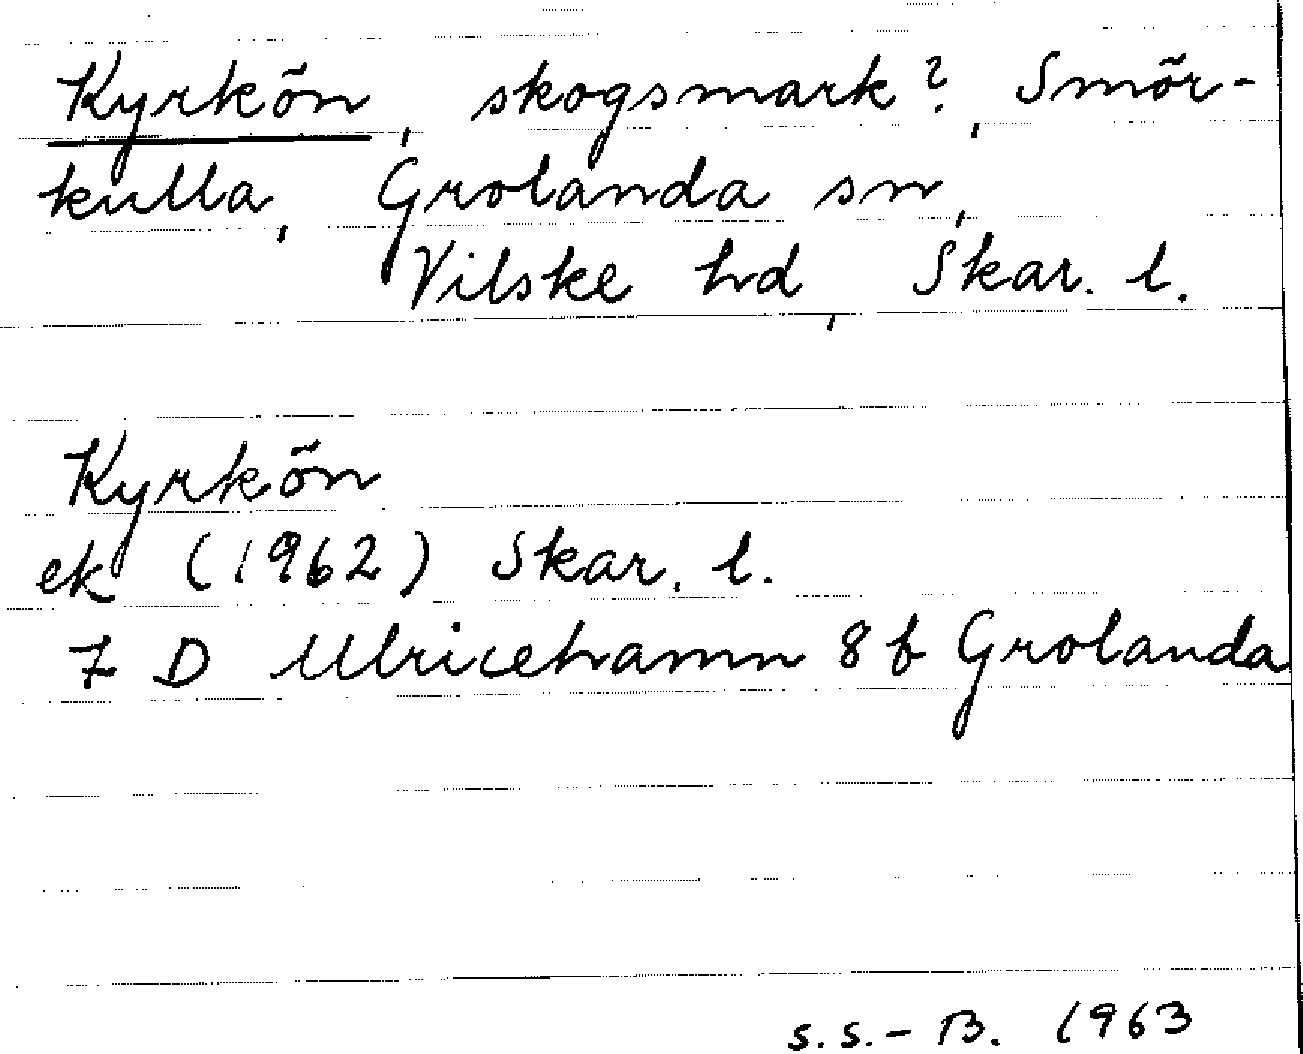 Kyrkön, skogsmark?, Smör-
kulla, Grolanda sn,
Vilske hd, Skar. l.
Kyrkön
ek (1962) Skar. l.
7 D Ulricehamn 8 f Grolanda
S.S.-B. 1963